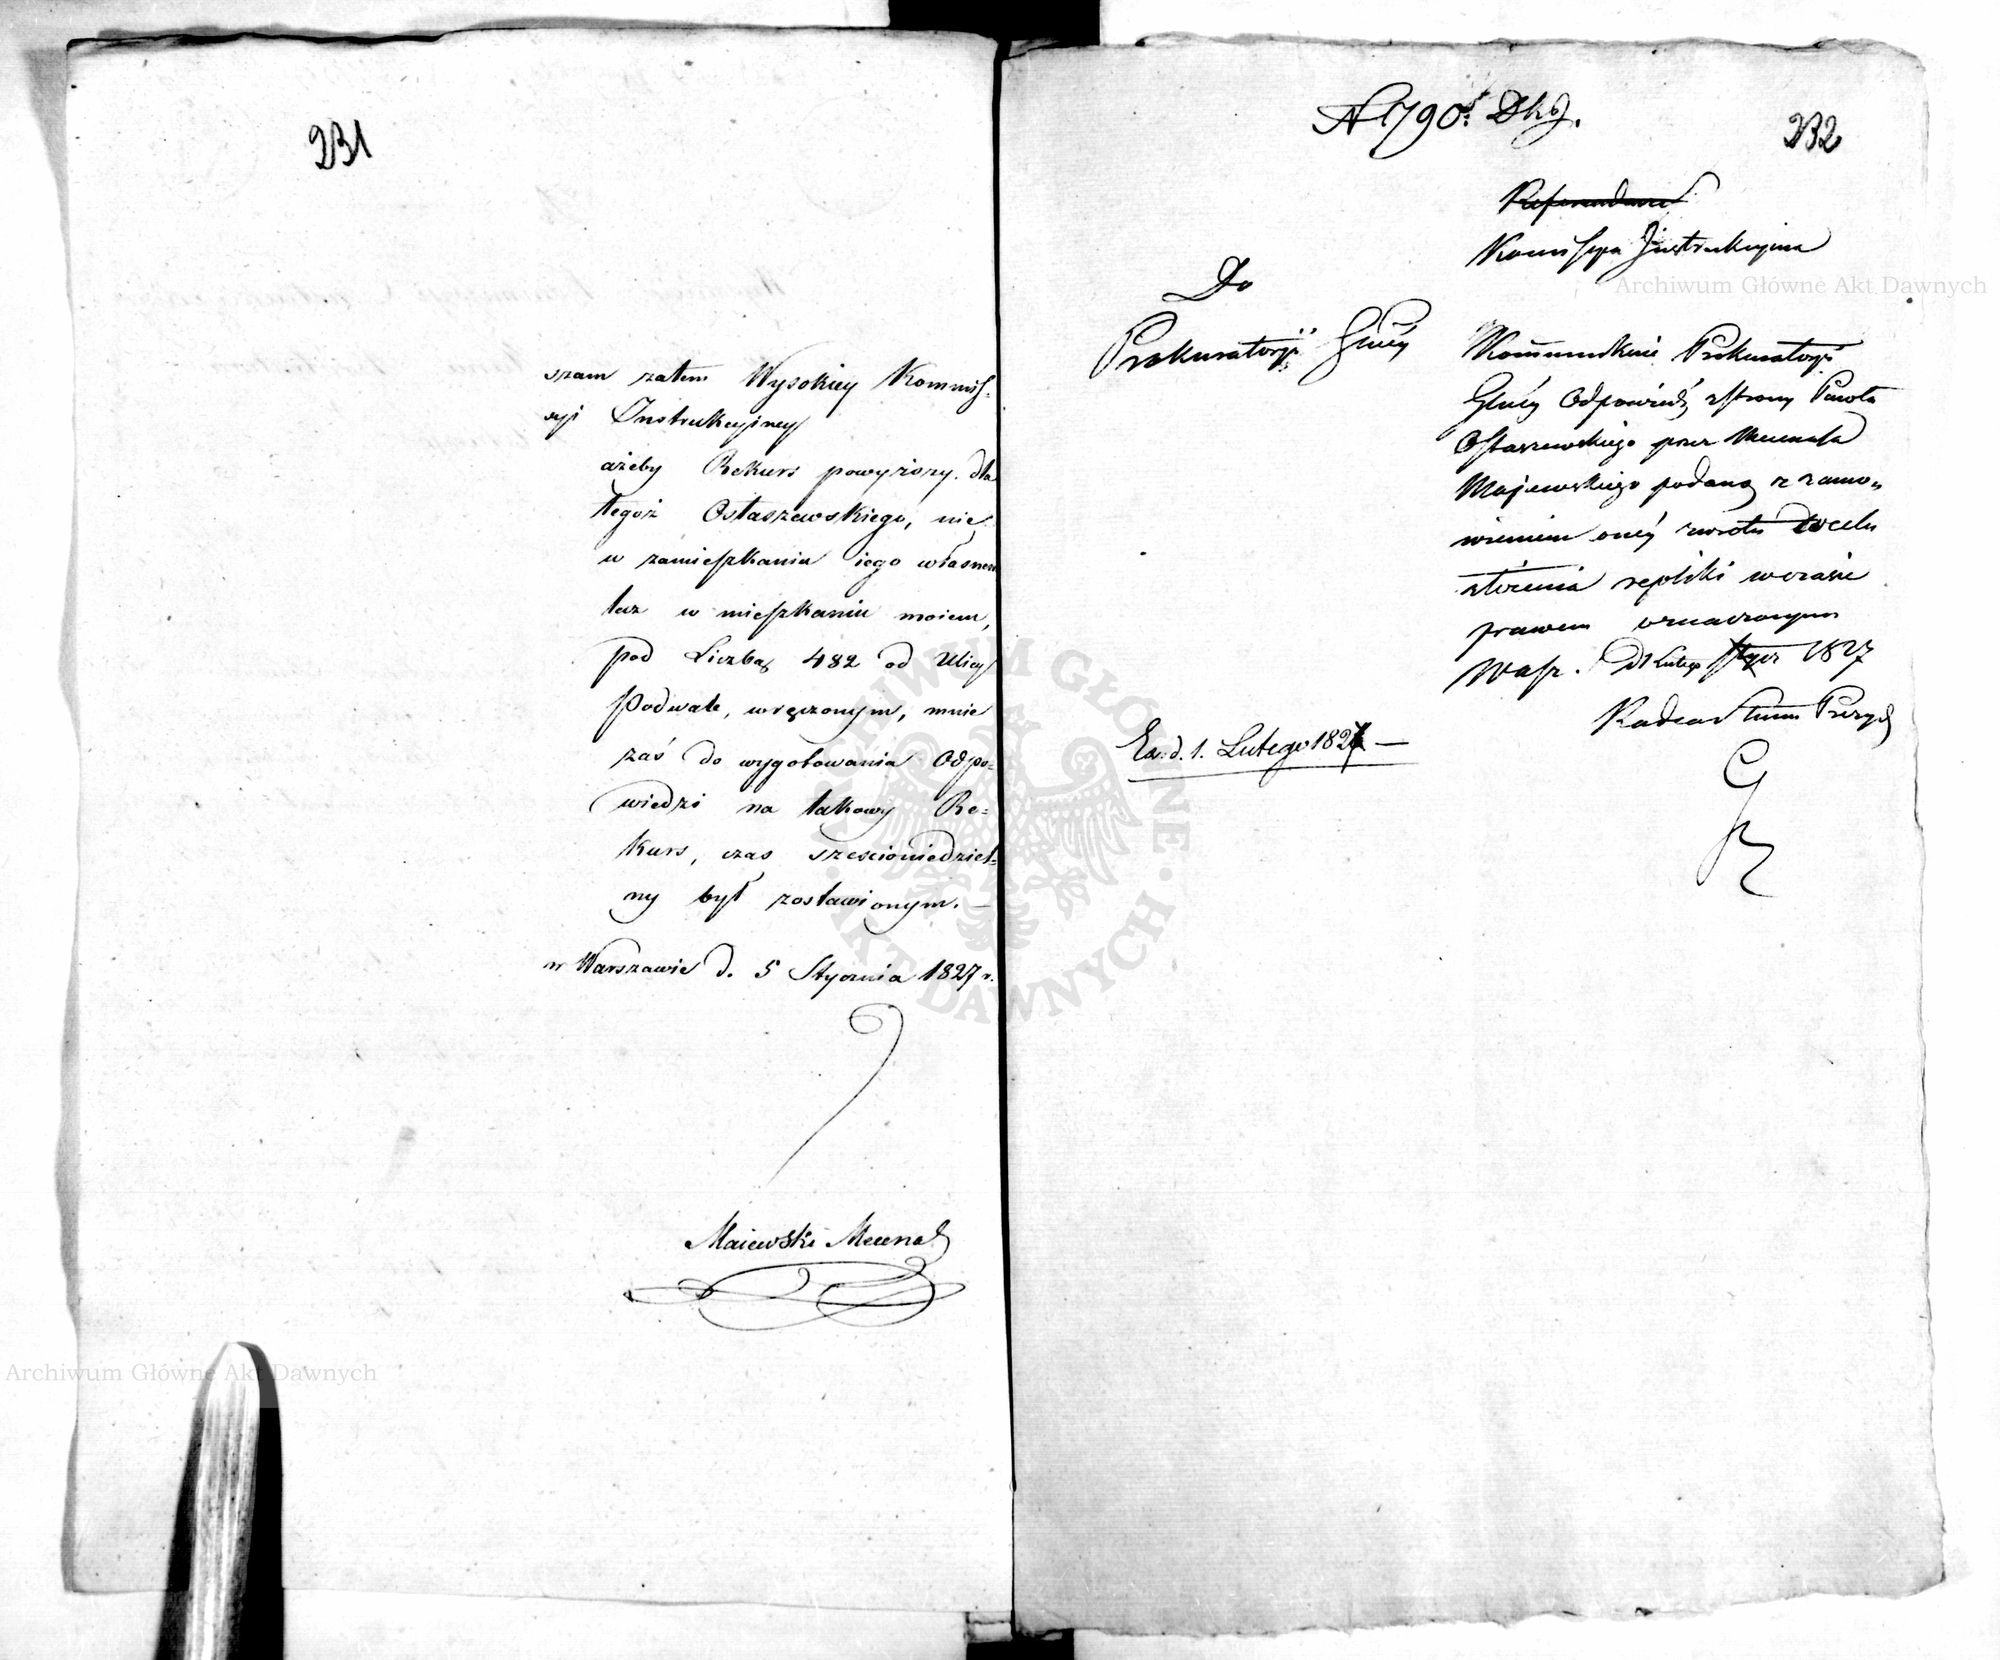 231
szam zatem Wysokiey Kommis-
syi Instrukcyiney
ażeby Rekurs powyższy. dla
tegoż Ostaszewskiego, nie
w zamieszkaniu iego własnem
lecz w mieszkaniu moiem,
pod Liczbą 482 od Ulicy
Podwale, wręczonym, mnie
zaś do wygotowania Odpo-
wiedzi na takowy Re=
kurs, czas sześcioniedziel-
ny był zostawionym. —
w Warszawie d. 5 Stycznia 1827 r.
Maiewski Mecenas
N 790
232
Referendarz
Kommissya Instrukcyina
Do
Prokuratoryi Gnéy
Kommunikuie Prokuratoryi
Gnéy Odpowiedź z strony Pawła
Ostaszewskiego przez Mecenasa
Majewskiego podaną z zamó„
wieniem onéy zwrotu do celu
złożenia repliki w czasie
prawem oznaczonym
Warsz. D 1 Lutego Stycz 1827
Radca Stanu Prezyd
Ex. d. 1. Lutego 1827 —
Archiwum Główne Akt Dawnych
Archiwum Główne Akt Dawnych
ARCHIWUM GŁÓWNE · AKT DAWNYCH ·